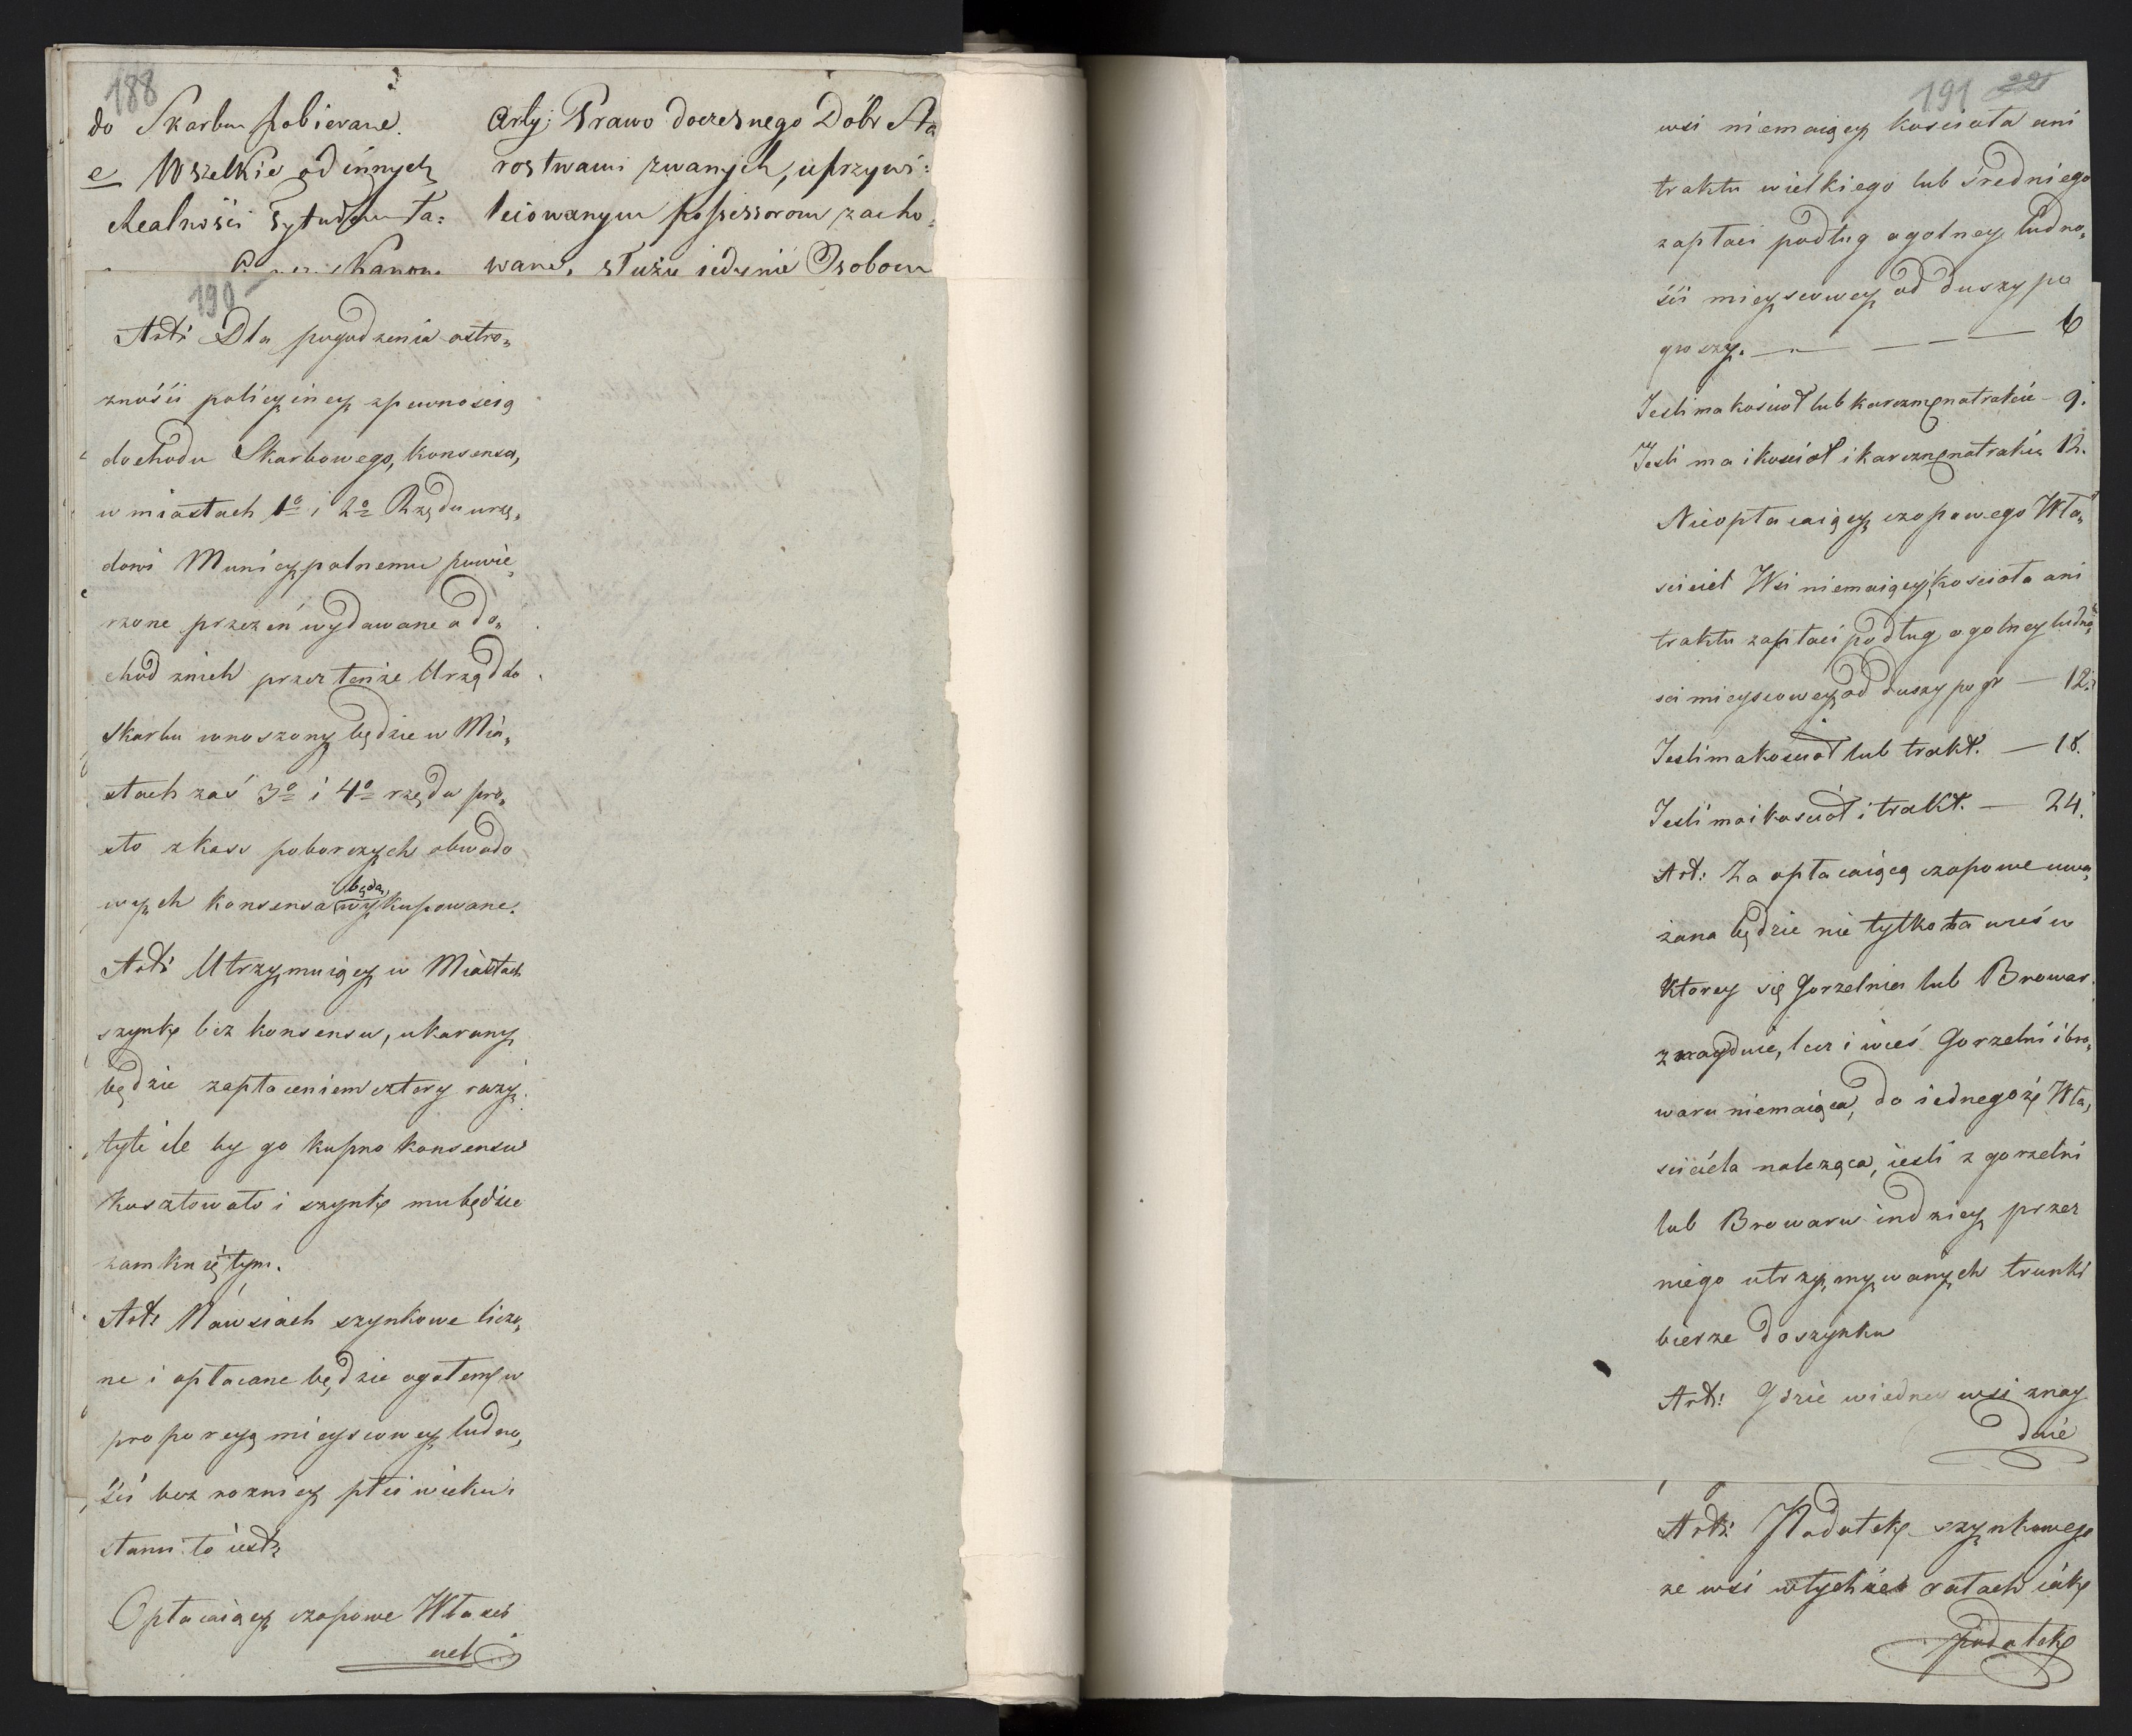 188
do Skarbu pobierane.
e Wszelkie od innych
Realności Tytułem Ta:
Kanon
Arty: Prawo doczesnego Dóbr Sta
rostwami zwanych, uprzywi:
leiowanym possessorom zacho:
wane, służy iedynie Osobom
190
Art: Dla pogodzenia ostro„
zności policyiney z pewnoscią
dochodu Skarbowego, konsensa,
w miastach 1o i 2o Rzędu urzę„
dowi Municypalnemu powie„
rzone przezeń wydawane a do„
chod znich przez tenże Urząd do
Skarbu wnoszony będzie w Mia„
stach zaś 3o i 4o rzędu pro„
sto z kass poborczych obwodo
wych konsensa będą wykupowane.
Art: Utrzymuiący w Miastach
szynk bez konsensu, ukarany
będzie zapłaceniem cztery razy
tyle ile by go kupno konsensu
kosztowało i szynk mu będzie
zamkniętym.
Art: Na wsiach szynkowe liczo„
ne i opłacane będzie ogołem w
proporcyą mieyscowey ludno„
ści bez roznicy płci wieku i
stanu to iest:
Opłacaiący czopowe Włascí
ciel
191 22
wsi niemaiącey kosciola ani
traktu wielkiego lub średniego
zapłaci podług ogolney ludno„
ści mieyscowey od duszy po
groszy. — — — — 6
Iesli ma kościoł lub karczmę na trakcie — 9.
Iesli ma i kościoł i karczmę na trakcie 12.
Nieopłacaiący czopowego Wła„
sciciel Wsi niemaiącey kosciola ani
traktu zapłaci podług ogolney ludno„
sci mieyscowey od duszy po gr — 12.
Iesli ma kosciol lub trakt. — 18.
Iesli ma i kościoł i trakt. — 24.
Art: Za opłacaiącą czopowe uwa„
żana będzie nie tylko ta wieś w
ktorey się Gorzelnia lub Browar
znayduie, lecz i wieś Gorzelni i bro„
waru niemaiąca, do iednegoż Wła„
sciciela należąca, iesli z gorzelni
lub Browaru indziey przez
niego utrzymywanych trunki
bierze do szynku
Art: Gdzie w iedney wsi znay
duie
Art: Podatek szynkowego
ze wsi w tychże ratach iak
podatek